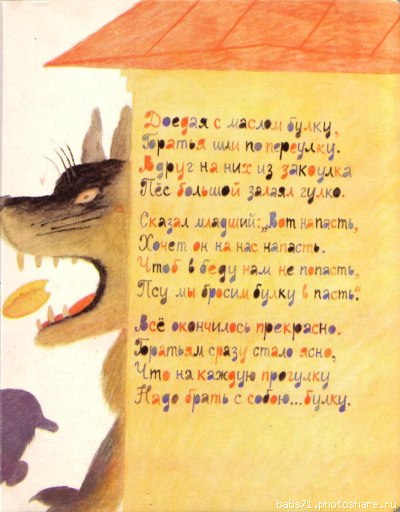 Доедая с маслом булку,
Братья шли по переулку.
Вдруг на них из закоулка
Пёс большой залаял гулко.
Сказал младший: „Вот напасть,
Хочет он на нас напасть.
Чтоб в беду нам не попасть,
Псу мы бросим булку в пасть“.
Всё окончилось прекрасно.
Братьям сразу стало ясно,
Что на каждую прогулку
Надо брать с собою...булку.
babs71.photoshare.ru